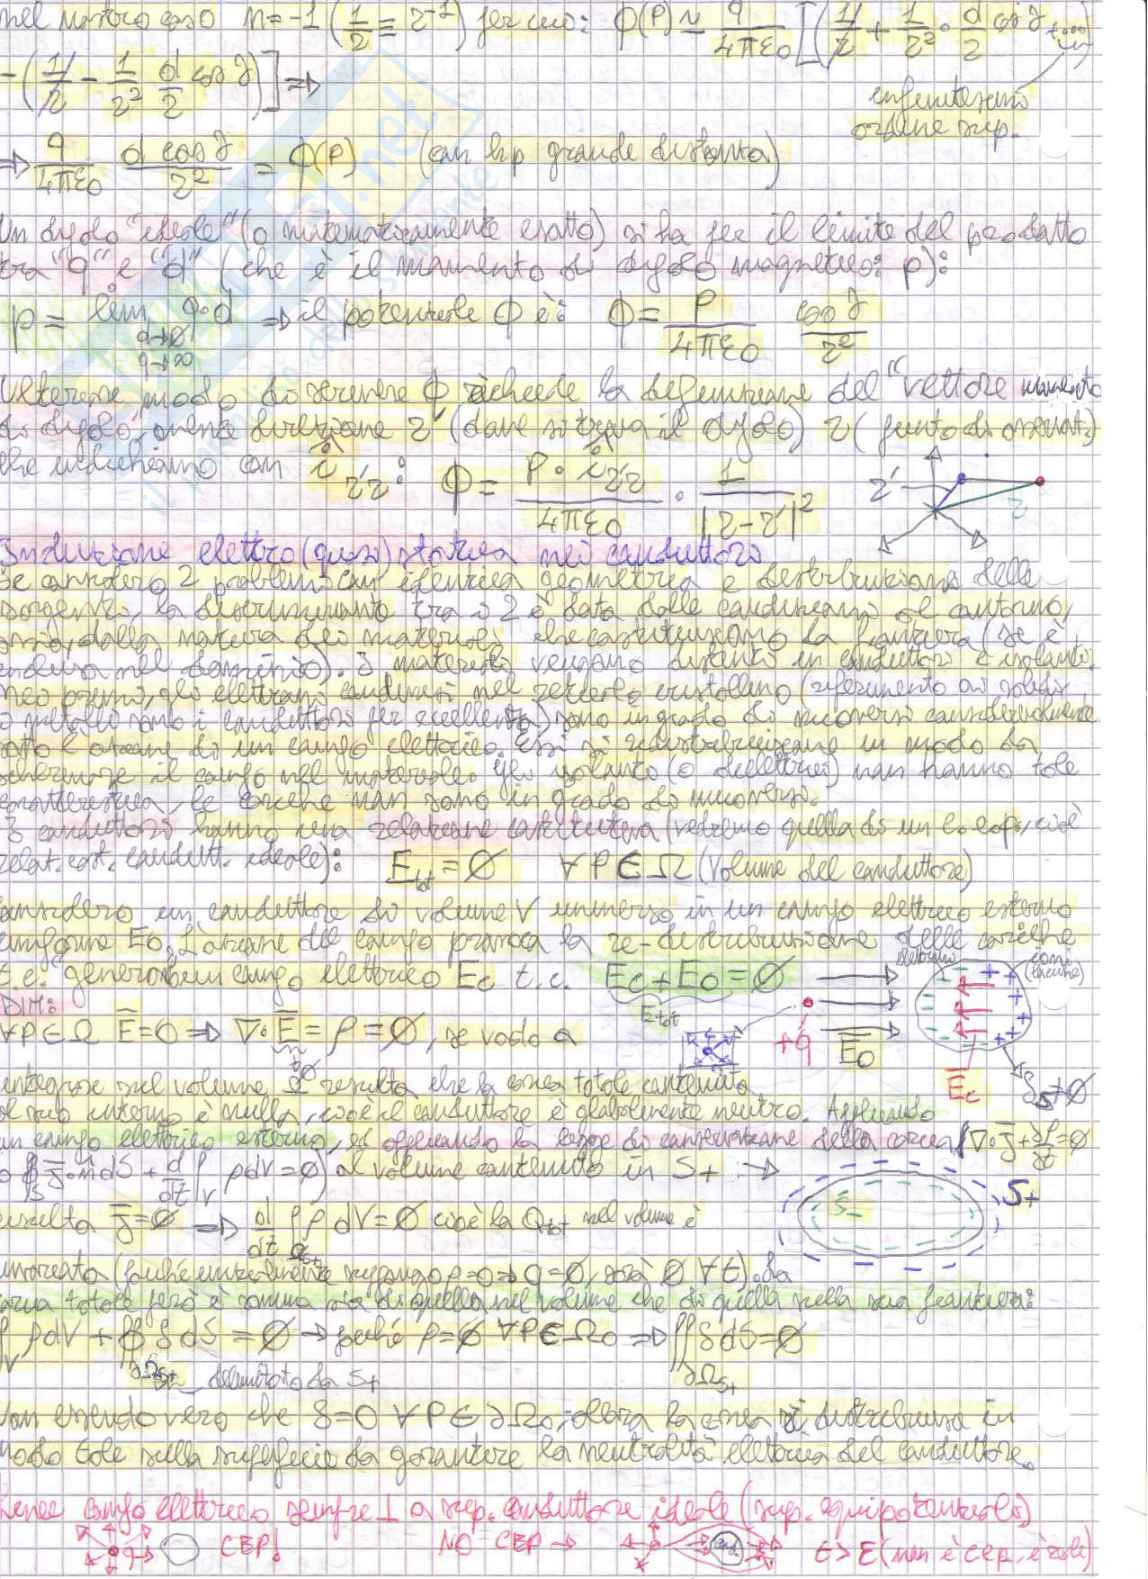 nel nostro caso n=-1 (1/2 = 2^-1) per cui: φ(P) ≃ q/4πε0 [(1/2 + 1/2² · d/2 cos γ +....)
-(1/2 - 1/2² d/2 cos γ)] ⇒
infinitesimi
ordine sup.
⇒ q/4πε0 d cos γ/2² = φ(P) (con hp grande distanza)
Un dipolo "ideale" (o matematicamente esatto) si ha per il limite del prodotto
tra "q" e "d" (che è il momento di dipolo magnetico: p):
p = lim q·d ⇒ il potenziale φ è: φ = P/4πε0 cos γ/2²
d→0
q→∞
Ulteriore modo di scrivere φ richiede la definizione del "vettore momento
di dipolo" avente direzione 2' (dove si trova il dipolo) 2 (punto di osservaz.)
che indichiamo con î 2'2: φ = P · î 2'2/4πε0 · 1/|2-2'|²
2'
2
Induzione elettro(quasi)statica nei conduttori
Se considero 2 problemi con identica geometria e distribuzione delle
sorgenti, la discriminante tra i 2 è data dalle condizioni al contorno,
ossia, dalla natura dei materiali che costituiscono la frontiera (se è
nel dominio). I materiali vengono distinti in conduttori e isolanti.
nei primi, gli elettroni condivisi nel reticolo cristallino (riferimento ai solidi,
i metalli sono i conduttori per eccellenza) sono in grado di muoversi
sotto l'azione di un campo elettrico. Essi si ridistribuiscono in modo da
schermare il campo nel materiale. Gli isolanti (o dielettrici) non hanno tale
caratteristica, le cariche non sono in grado di muoversi.
I conduttori hanno una relazione costitutiva (vedremo quella di un c.e.p., cioè
relat. cost. condutt. ideale): E tot = Ø ∀ P ∈ Ω (Volume del conduttore)
considero un conduttore di volume V immerso in un campo elettrico esterno
uniforme E0. L'azione del campo provoca la re-distribuzione delle cariche
t.c. generano un campo elettrico Ec t.c. Ec + E0 = Ø
E tot
+q
E0
Ec
δs ≠ 0
DIM:
∀P∈Ω E̅=0 ⇒ ∇·E̅ = ρ = Ø, se vado a
integrare sul volume Ω risulta che la carica totale contenuta
al suo interno è nulla, cioè il conduttore è globalmente neutro. Applicando
un campo elettrico esterno, ed applicando la legge di conservazione della carica (∇·J̅+∂ρ/∂t=0
o ∯s J̅·n̂ dS + d/dt ∫v ρdV = 0) al volume contenuto in S+ →
S-
S+
risulta J̅=Ø ⇒ d/dt ∫ ρ dV = Ø cioè la Q tot nel volume è
invariata (poiché inizialmente ρ=0⇒q=0, sarà Ø ∀t). La
carica totale però è somma sia di quella nel volume che di quella sulla sua frontiera:
∫ ρdV + ∯ δ dS = Ø → poiché ρ=Ø ∀P∈Ω0 ⇒ ∬ δdS=Ø
V
∂Ωs+ delimitato da S+
∂Ωs+
Non essendo vero che δ=0 ∀P∈∂Ω0, allora la carica si distribuisce in
modo tale sulla superficie da garantire la neutralità elettrica del conduttore.
Linee campo elettrico sempre ⊥ a sup. conduttore ideale (sup. equipotenziale)
CEP!
NO CEP →
cond.
(non è CEP, è